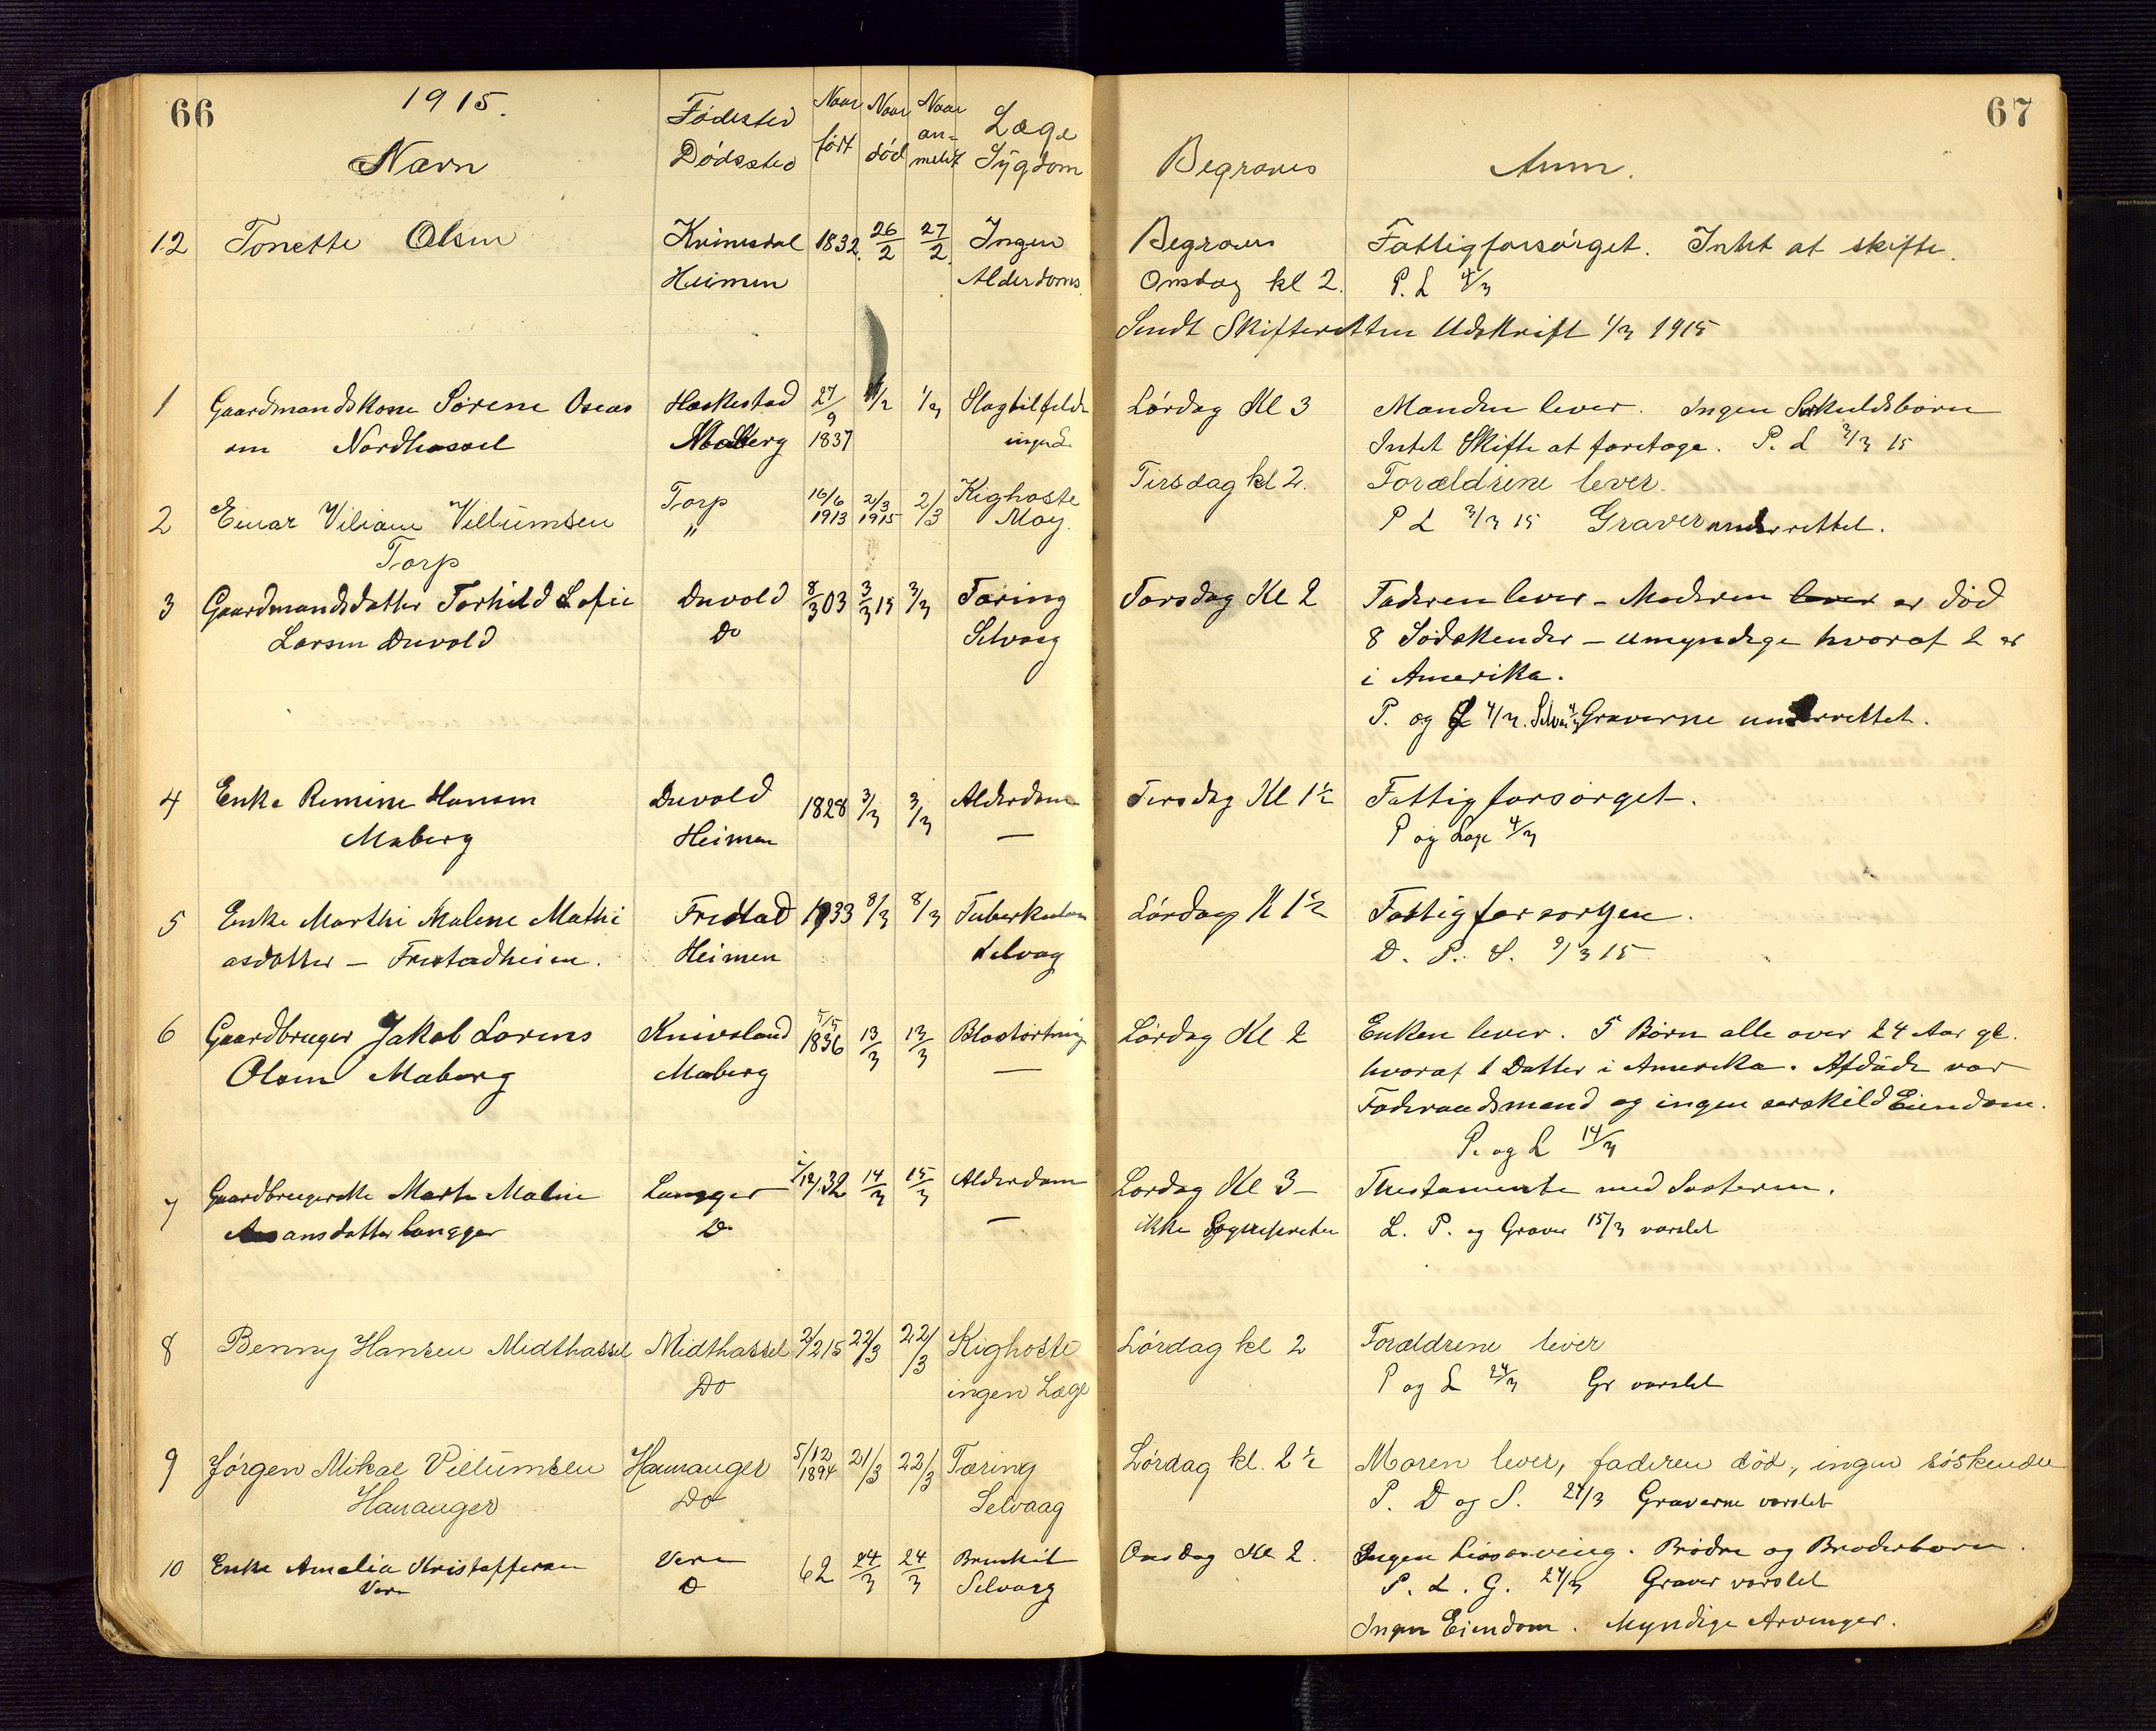 66 1915. 67
Navn Fødested Dødssted Naar født Naar død Naar anmeldt Læge Sygdom Begraves Anm.
12 Tonette Olsen Kvinesdal 1832 26/2 27/2 Ingen Begraves Fattigforsørget. Intet at skifte.
Heimen Alderdoms. Onsdag kl 2. P. L 4/3
Sendt Skifteretten Udskrift 1/3 1915
1 Gaardmandskone Sørene Oseas Haskestad 27/9 1/3 Slagtilfelde Lørdag Kl 3 Manden lever. Ingen Særkuldsbørn
en Nordhassel Maberg 1837 ingen L. Intet Skifte at foretage. P. L 3/3 15
2 Einar Viliam Villumsen Torp 16/6 1913 2/3 1915 2/3 Kighoste May. Tirsdag kl 2. Forældrene lever.
Torp " P L 3/3 15 Graver underrettet.
3 Gaardmandsdatter Torhild Sofie Duvold 8/3 03 3/3 15 3/3 Tæring Torsdag Kl 2 Faderen lever – Moderen lever er død
Larsen Duvold Do Selvaag 8 Sødskender – umyndige hvoraf 2 er
i Amerika.
P. og L 4/3. Graverne underrettet.
4 Enke Remine Hansen Duvold 1828 3/3 3/3 Alderdom Tirsdag Kl 1½ Fattigforsørget.
Maberg Heimen — P og Læge 4/3
5 Enke Marthe Malene Mathi Frestad 1833 8/3 8/3 Tuberkulose Lørdag Kl 1½ Fattigforsorgen.
asdatter – Frestadheien. Heimen Selvag D. P. S. 9/3 15
6 Gaardbruger Jakob Lorens Knivsland 5/5 1836 13/3 13/3 Blastørtning Lørdag Kl 2 Enken lever. 5 Børn alle over 24 Aar gl.
Olsen Maberg Maberg — hvoraf 1 Datter i Amerika. Afdøde var
Føderaadsmand og ingen serskild Eiendom.
P. og L 14/3
7 Gaardbrugerske Marte Malene Langger /12 32 14/3 15/3 Alderdom Lørdag Kl 3 – Thestamente med Søsteren.
ansdatter Langger Do — ikke L. P. og Graver 15/3 varslet
8 Benny Hansen Midthassel Midthassel 2/2 15 22/3 22/3 Kighoste Lørdag kl 2 Forældrene lever
Do ingen Læge P og L 24/3 Gr varslet
9 Jørgen Mikal Villumsen Hananger 5/12 1894 21/3 22/3 Tæring Lørdag kl. 2½ Moren lever, faderen død, ingen søskende
Hananger Do Selvaag P. D og S. 24/3 Graverne varslet
10 Enke Amalia Kristoffersen Vere 62 24/3 24/3 Bronkit Onsdag Kl 2. Ingen Livsarving. Brødre og Broderbørn.
Vere D Selvaag P. L. G. 24/3 Graver varslet
Ingen Eiendom. Myndige Arvinger.